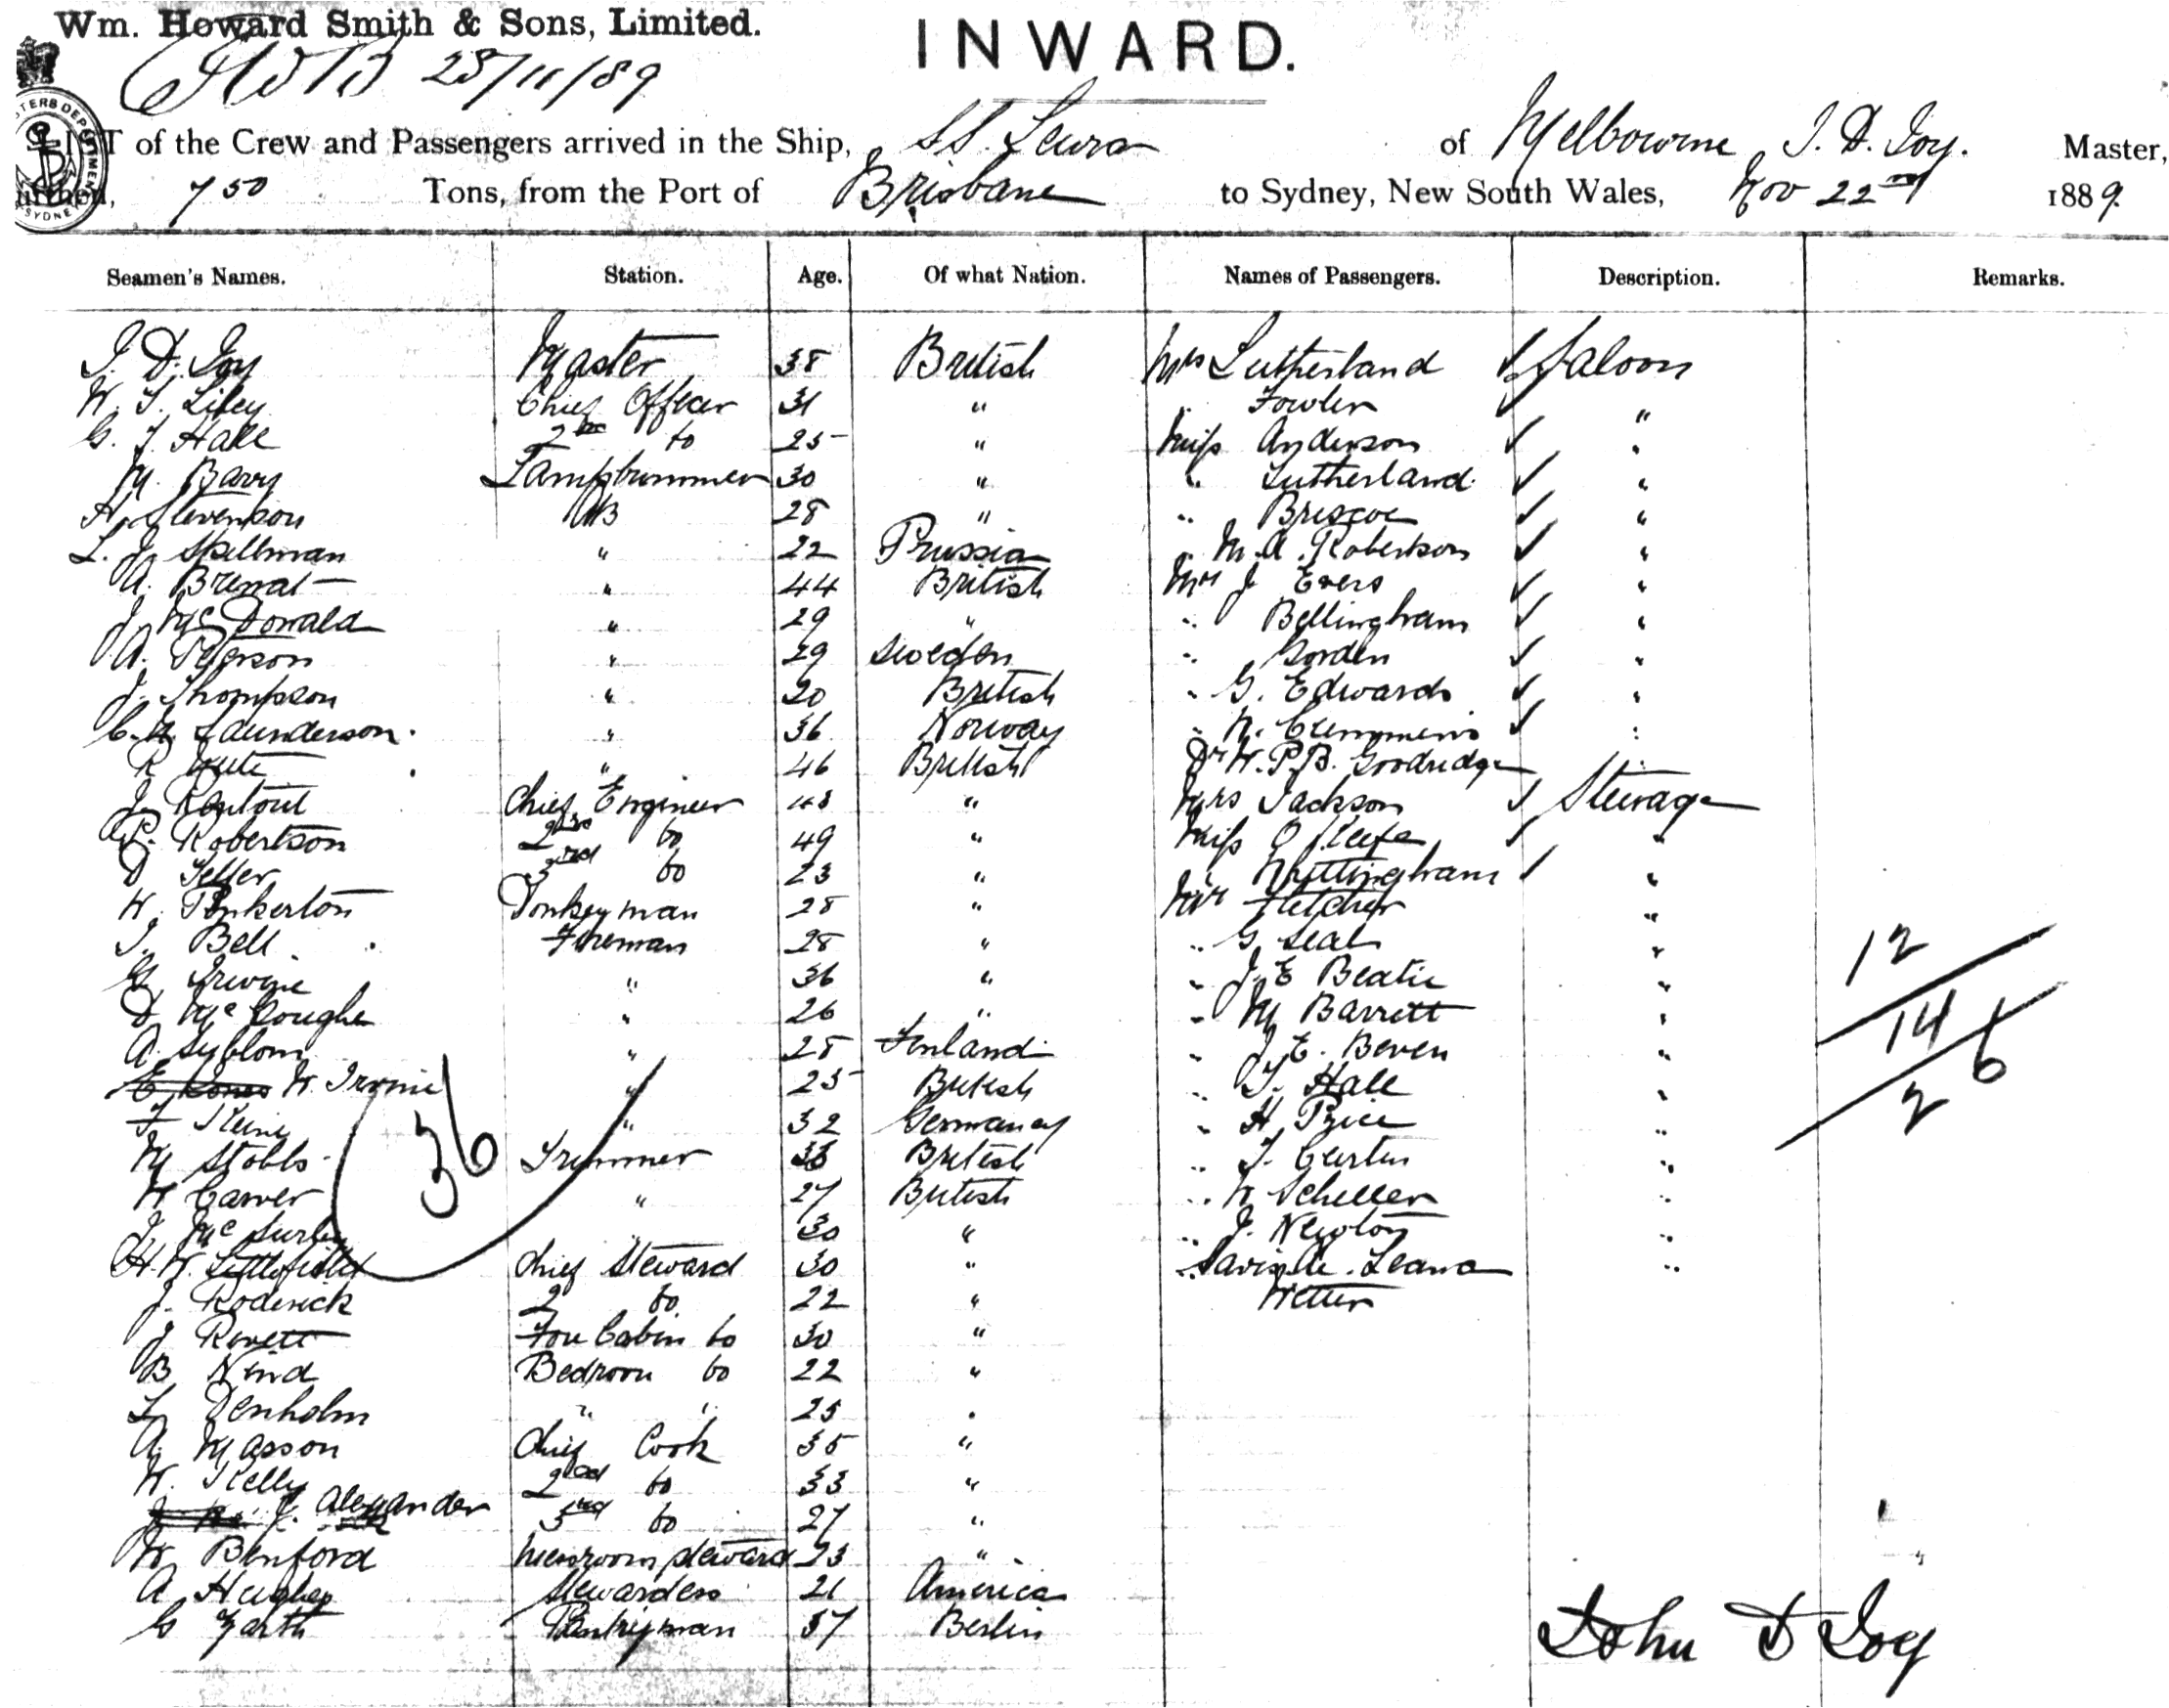 Wm. Howard Smith & Sons, Limited.
INWARD.
28/11/89
LIST of the Crew and Passengers arrived in the Ship, S.S. Leura of Melbourne J. D. Joy. Master,
Burthen, 750 Tons, from the Port of Brisbane to Sydney, New South Wales, Nov 22nd 1889.
Seamen's Names. Station. Age. Of what Nation. Names of Passengers. Description. Remarks.
J. D. Joy Master 38 British Mrs Sutherland ✓ Saloon
W. T. Liley Chief Officer 31 " " Fowler ✓ "
G. T. Hall 2nd Do 25 " Miss Anderson ✓ "
M. Barry Lamptrimmer 30 " " Sutherland ✓ "
A. Stevenson AB 28 " " Briscoe ✓ "
L. J. Skillman " 22 Prussia " M. A. Robertson ✓ "
A. Brewat " 44 British Mr J Evers ✓ "
J. McDonald " 29 " " Bellingham ✓ "
A. Peterson " 29 Sweden " Gorden ✓ "
J. Thompson " 20 British " G. Edwards ✓ "
C. A. Saunderson " 36 Norway " W. Clemmens ✓ "
R " 46 British Dr W. P. B. Goodridge "
J. Rentoul Chief Engineer 48 " Mrs Jackson ✓ Steerage
A. P. Robertson 2nd Do 49 " Miss O'Keefe ✓ "
D Teller 3rd Do 23 " " Nuttingham ✓ "
W. Pinkerton Donkeyman 28 " Mr Fletcher "
J. Bell Fireman 28 " " G Seal "
G. Irvine " 36 " " J. E Beatie "
D McCoughe " 26 " " M Barrett "
A. Syblom " 28 Finland " J. E. Beven "
E. Jones W. Irvine " 25 British " T. Hall "
F Kline " 32 Germany " H. Price "
M Stobbs Trimmer 33 British " T. Curtin "
W Carver " 27 British " W Scheller "
J. McSurley 30 " " J. Newton "
H. W. Littlefield Chief Steward 30 " " Leana "
J. Roderick 2 Do 22 "
J Revett Fore Cabin Do 30 "
B Nind Bedroom Do 22 "
L Denholm " " 25 "
A. Masson Chief Cook 35 "
W. Kelly 2nd Do 33 "
J. Alexander 3rd Do 27 "
W. Binford Messroom Steward 23 "
A Hughes Stewardess 21 America
G Garth Pantryman 37 Berlin
36
12
14
26
John D Joy